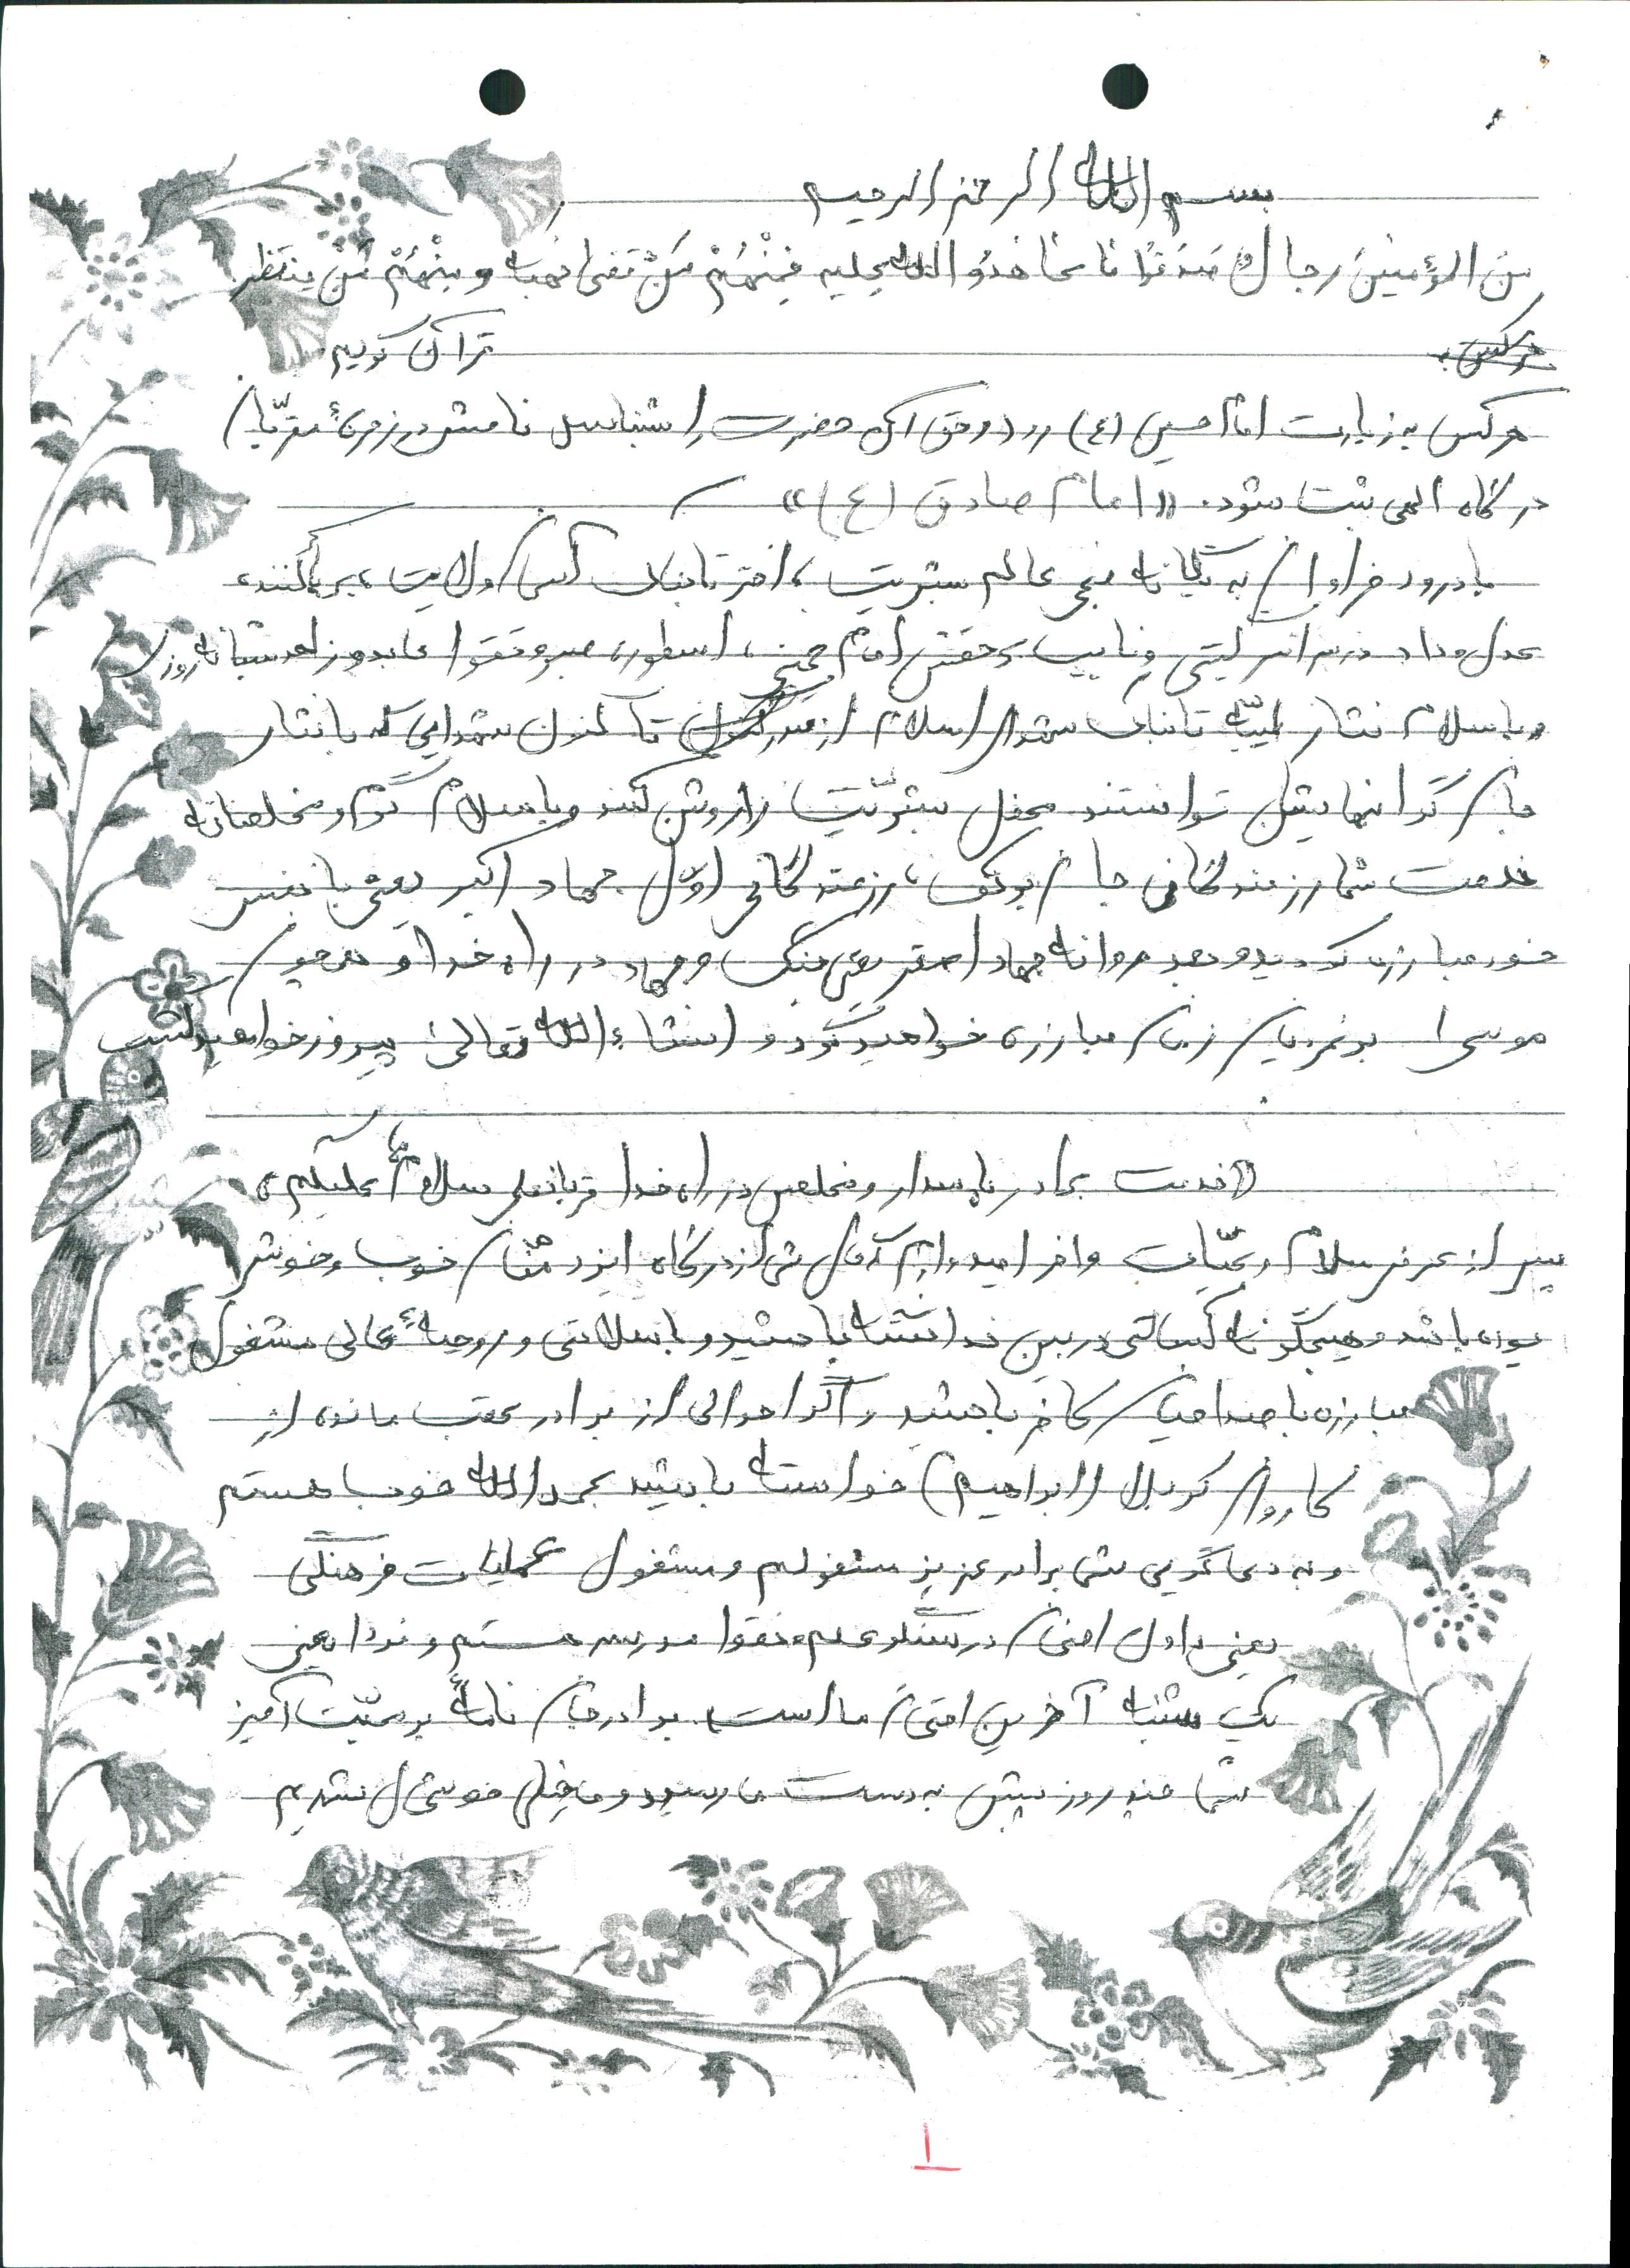 بسم الله الرحمن الرحیم
مِنَ المؤمنینَ رجالٌ صَدَقُوا ما عاهَدُو الله علیه فَمِنْهُمْ مَنْ قضی نحبه و مِنْهُمْ مَنْ ینتظر
هرکس به
قرآن کریم
هرکس به زیارت امام حسین (ع) رود و حق آن حضرت را بشناسد نامش در زمرهٔ مقرّبان
درگاه الهی ثبت شود. «امام صادق (ع)»
با درود فراوان به یگانه منجی عالم بشریت، اختر تابناک آسمان ولایت، برپاکننده
عدل و داد در سراسر گیتی و نایب برحقش امام خمینی، اسطوره صبر و تقوا عابد و زاهد شبانه روز
و با سلام نثار طیّبه تابناک شهدای اسلام از صدر تا کنون شهدایی که با نثار
جان گرانبهایشان توانستند محفل بشریّت را روشن کنند و با سلام گرم و مخلصانه
خدمت شما رزمندگانی جان برکف، رزمندگانی اوّل جهاد اکبر یعنی با نفس
خود مبارزه کردید و بعد روانه جهاد اصغر یعنی جنگ و جهاد در راه خدا و همچون
موسی بر نمرودیان زمان مبارزه خواهید کرد و انشاءالله تعالی پیروز خواهید گشت
«خدمت برادر پاسدار و مخلص در راه خدا قربانعلی سلامٌ علیکم»
پس از عرض سلام و تحیّات وافر امیدوارم که حال شما از درگاه ایزد منّان خوب و خوش
بوده باشد و هیچگونه کسالتی در بین نداشته باشید و با سلامتی و روحیهٔ عالی مشغول
مبارزه با صدامیان کافر باشید و اگر احوالی از برادر عقب مانده از
کاروان کربلا (ابراهیم) خواسته باشید بحمدالله خوب هستم
و به دعاگویی شما برادر عزیز مشغولم و مشغول عملیات فرهنگی
یعنی دادن امتحان در سنگر علم و تقوا مدرسه هستم و فردا یعنی
یک شنبه آخرین امتحان ما است برادر جان نامهٔ پر محبّت آمیز
شما چند روز پیش به دست ما رسید و ما خیلی خوشحال شدیم
۱